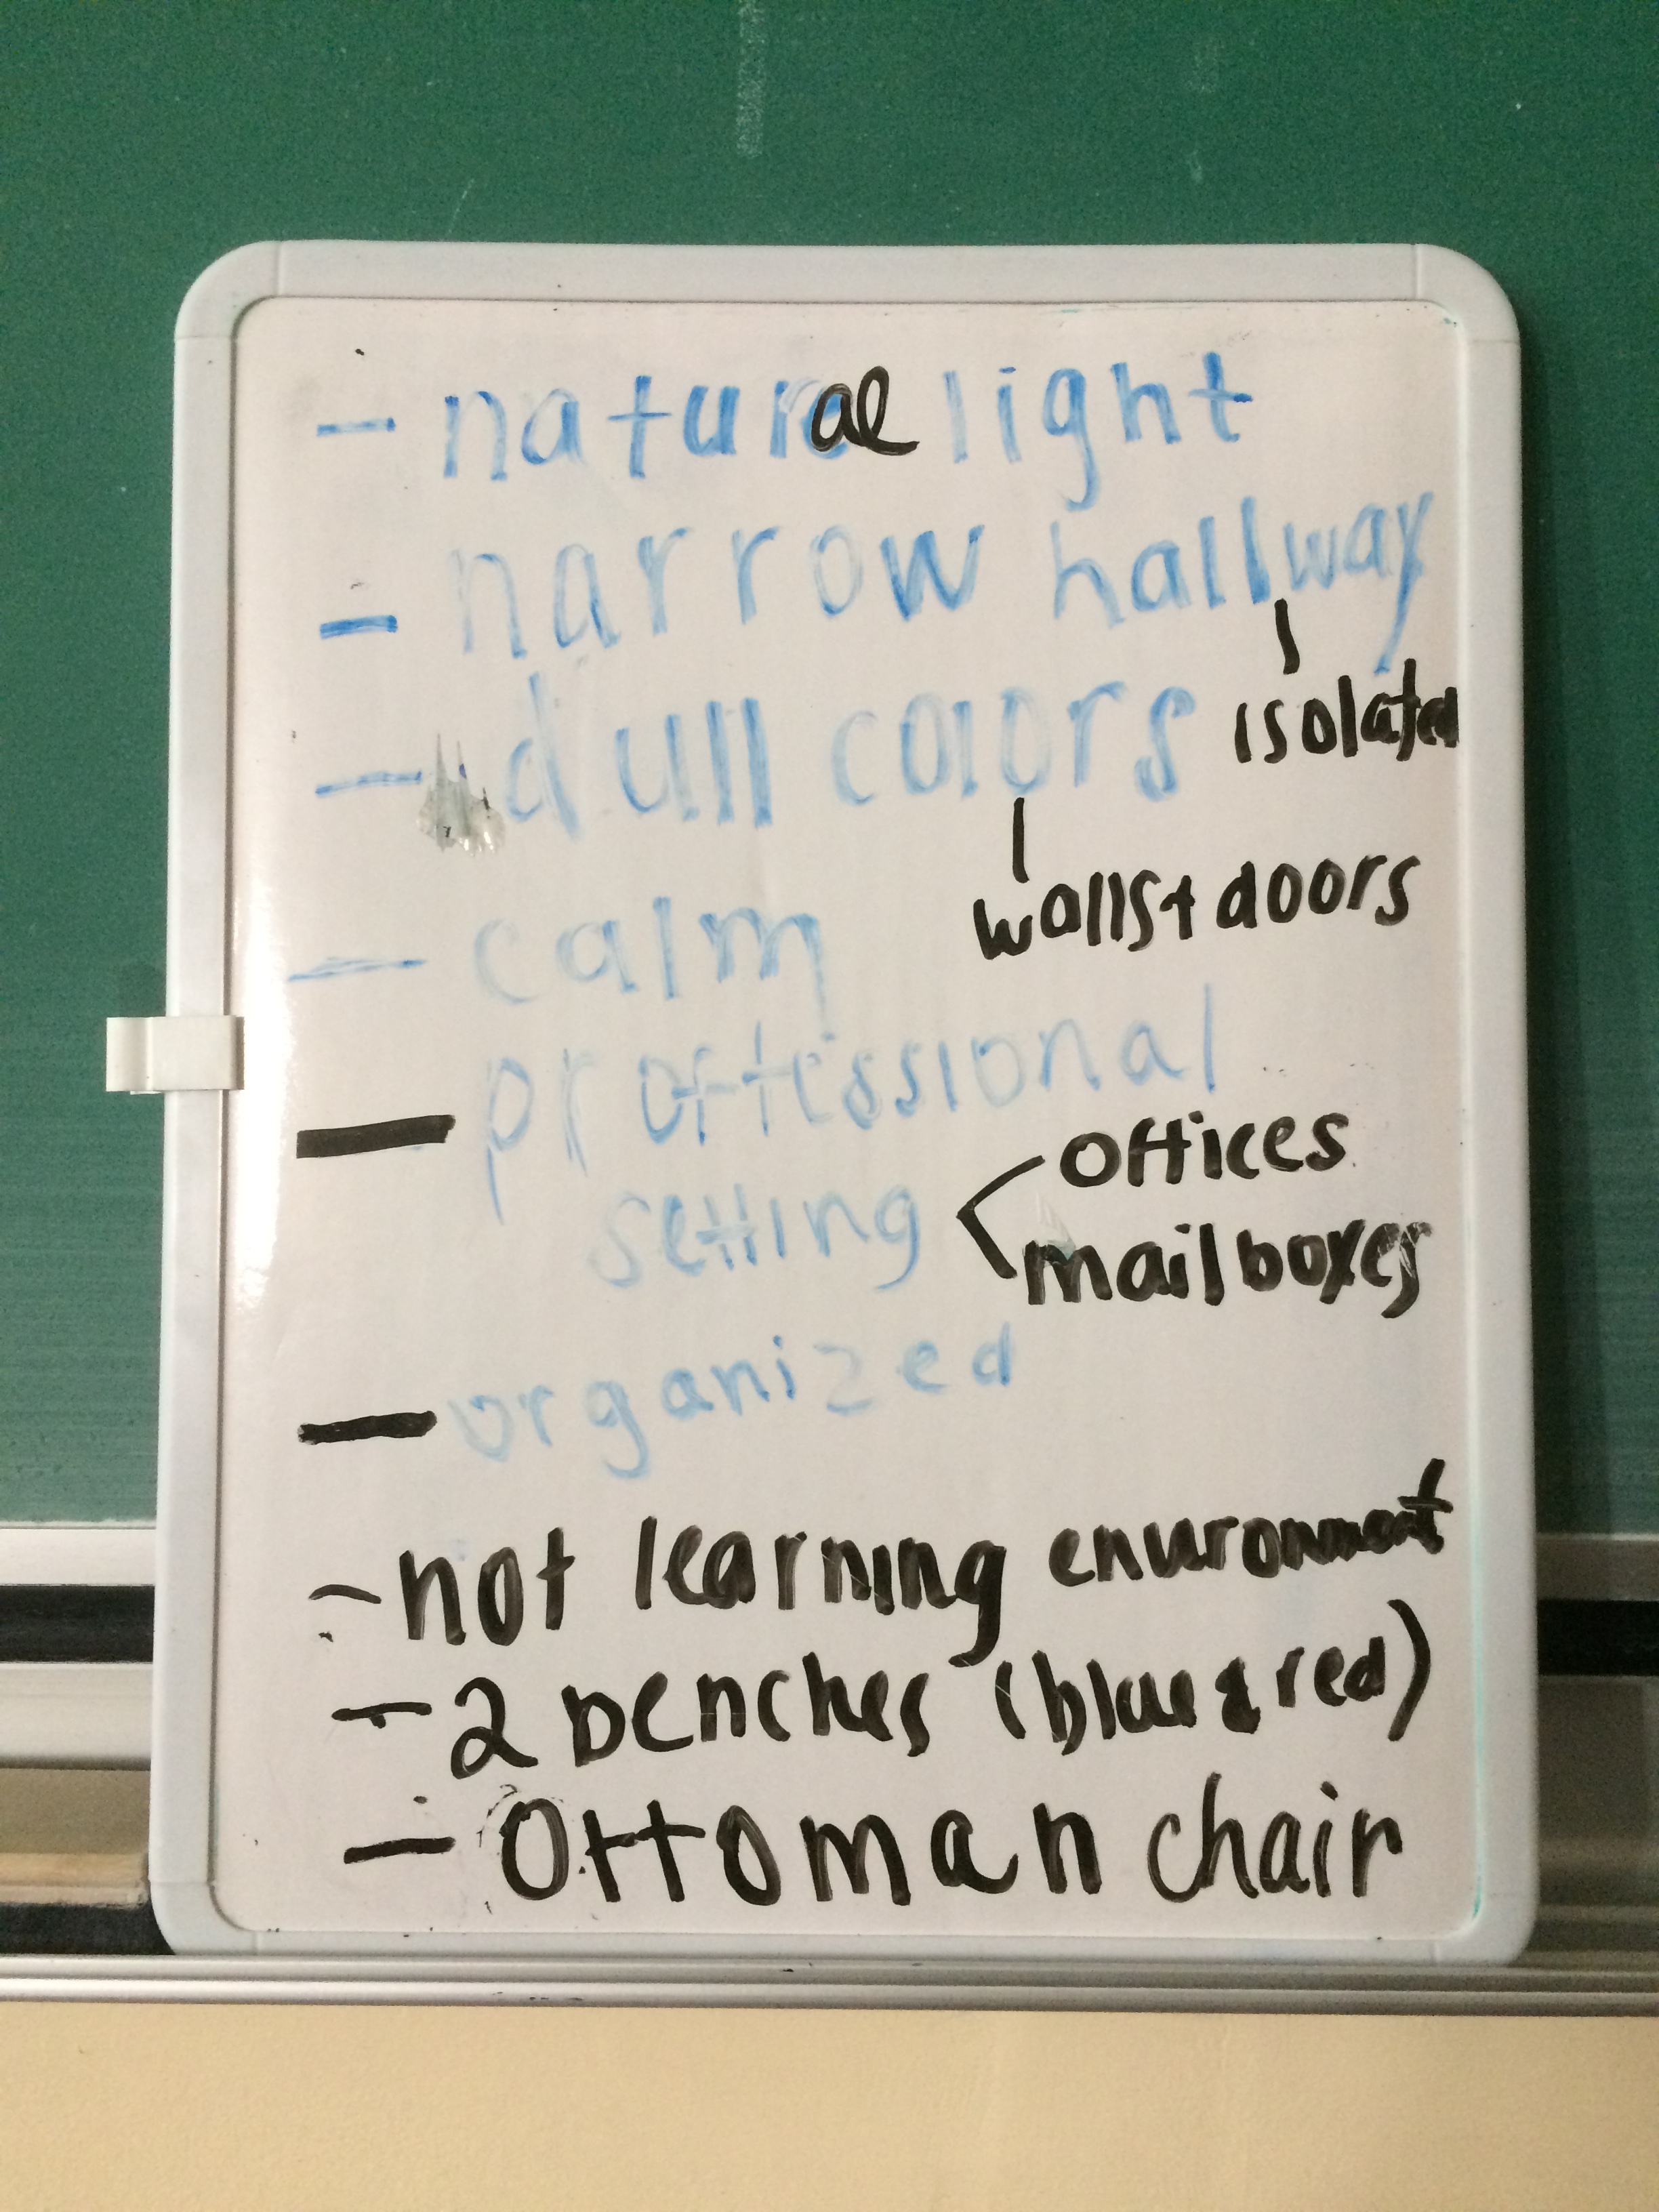 - natural light
- narrow hallway
isolated
- dull colors
walls + doors
- calm
- proffessional
setting
offices
mailboxes
- organized
- not learning environment
- 2 benches (blue & red)
- Ottoman chair